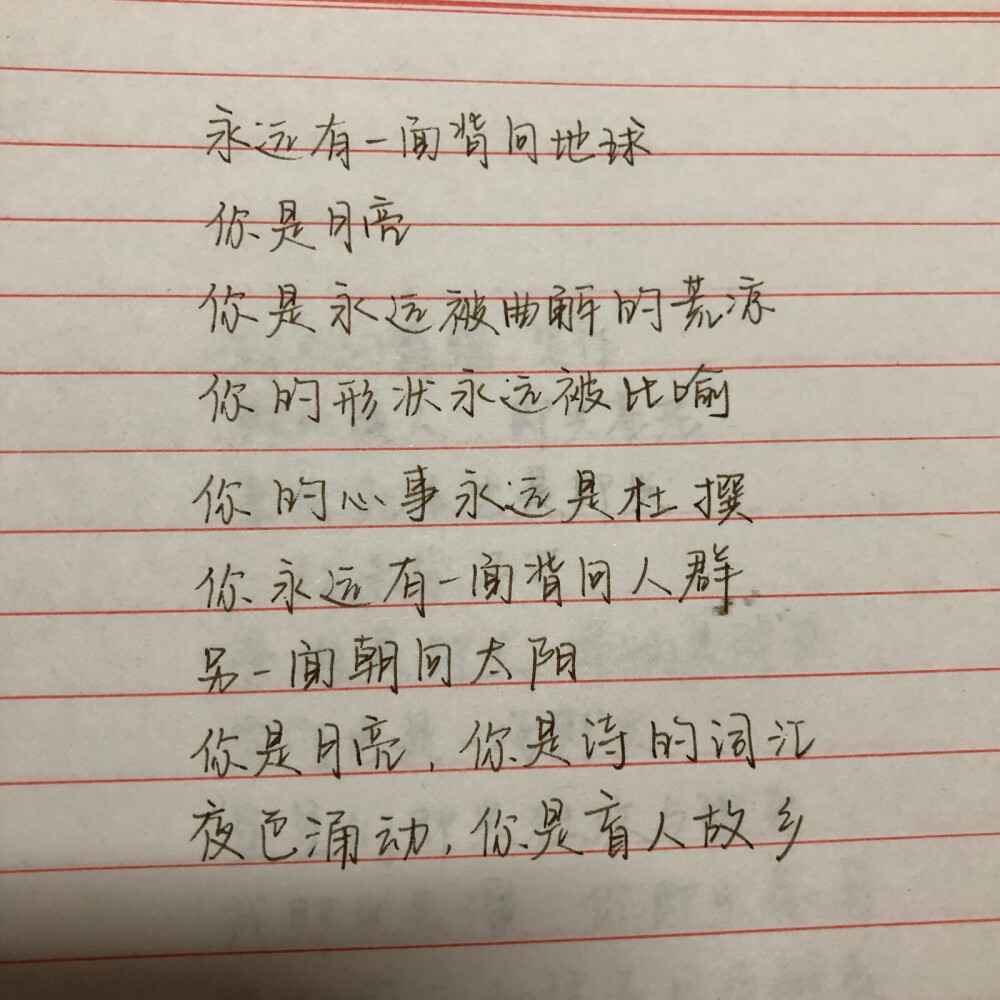 永远有一面背向地球
你是月亮
你是永远被曲解的荒凉
你的形状永远被比喻
你的心事永远是杜撰
你永远有一面背向人群
另一面朝向太阳
你是月亮，你是诗的词汇
夜色涌动，你是盲人故乡